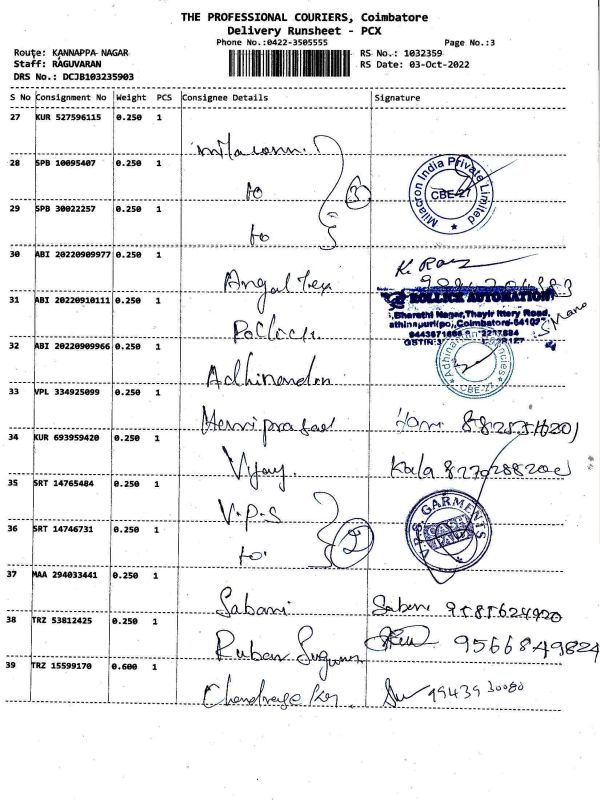 THE PROFESSIONAL COURIERS, Coimbatore
Delivery Runsheet - PCX
Phone No.:0422-3505555 Page No.:3
Route: KANNAPPA NAGAR RS No.: 1032359
Staff: RAGUVARAN RS Date: 03-Oct-2022
DRS No.: DCJB103235903
S No Consignment No Weight PCS Consignee Details Signature
27 KUR 527596115 0.250 1
Milacron
28 SPB 10095407 0.250 1
to 3 Milacron India Private Limited CBE-27
29 SPB 30022257 0.250 1
to
30 ABI 20220909977 0.250 1
Angal Tex K. Raj
31 ABI 20220910111 0.250 1
ROLLICK AUTOMATION
Bharathi Nagar, Thayir Ittery Road,
32 ABI 20220909966 0.250 1
Adhinandan CBE-27
33 VPL 334925099 0.250 1
Hariprasad
34 KUR 693959420 0.250 1
Vijay Kala
35 SRT 14765484 0.250 1
V.P.S V.P.S. GARMENTS
36 SRT 14746731 0.250 1
to 2
37 MAA 294033441 0.250 1
Sabari
38 TRZ 53812425 0.250 1
Ruban 9566849824
39 TRZ 15599170 0.600 1
9943930080